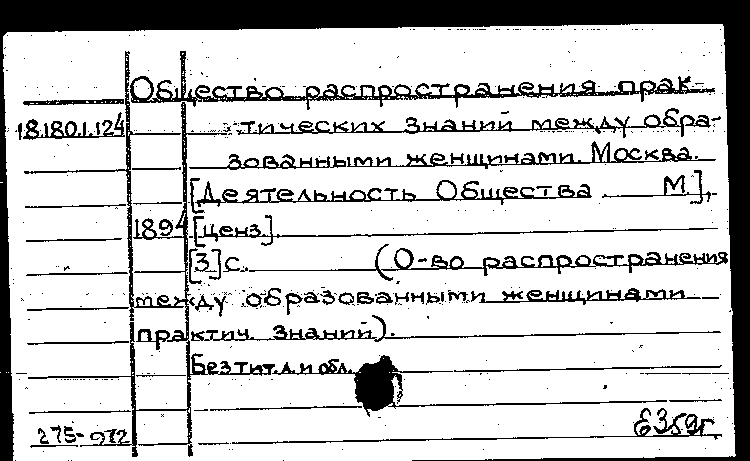 Общество распространения прак-
18.180.1.124 тических знаний между обра-
зованными женщинами. Москва.
[Деятельность Общества М.],
1894 [ценз].
[3]с. (О-во распространения
между образованными женщинами
практич. знаний).
Без тит. л. и обл.
275-972